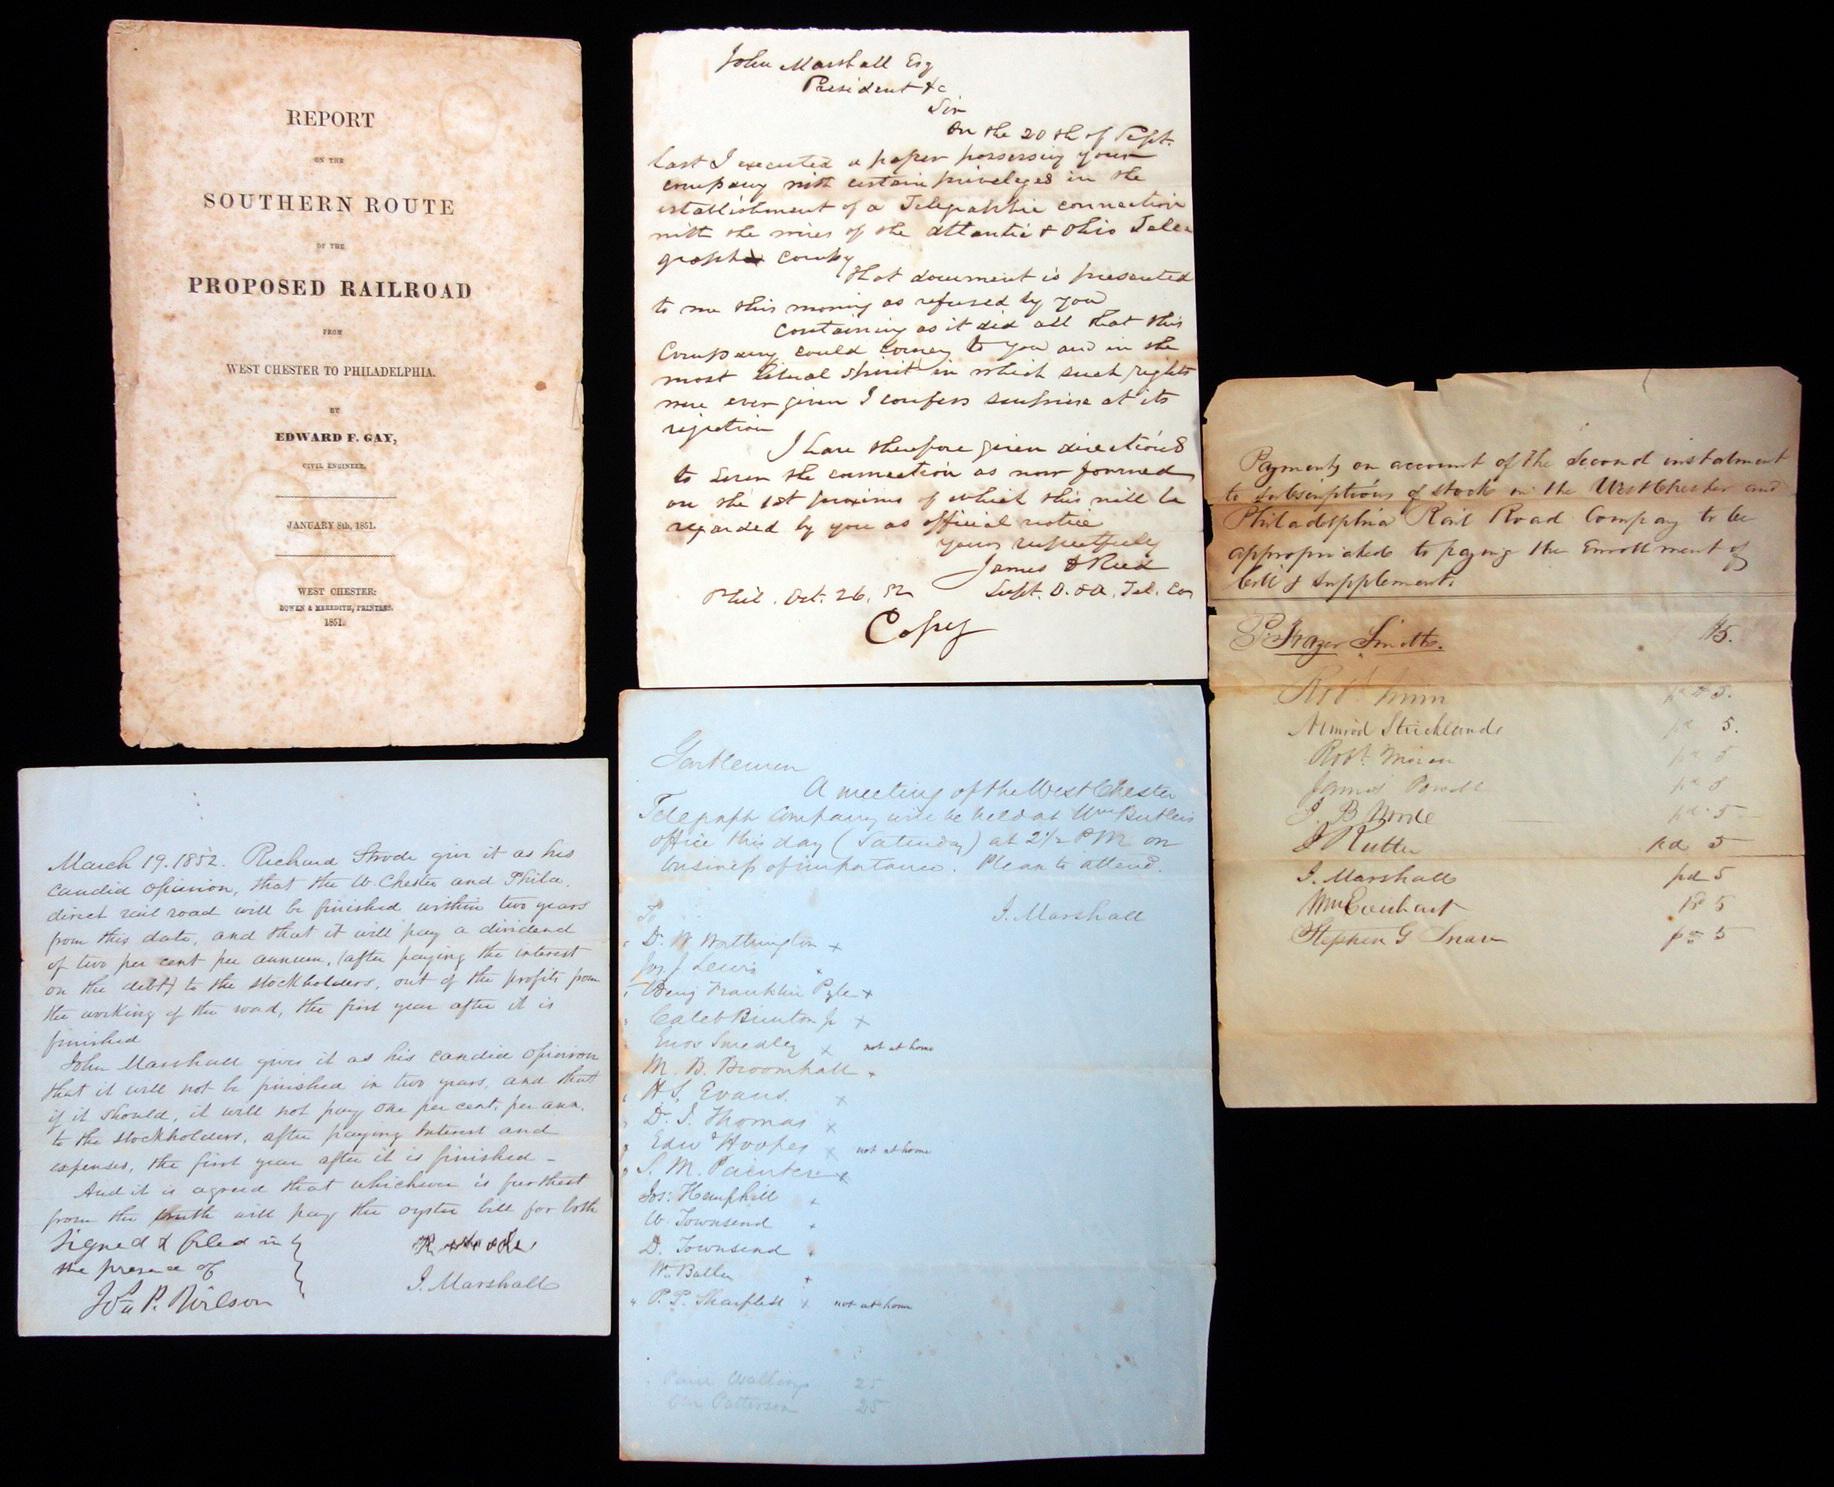 REPORT
ON THE
SOUTHERN ROUTE
OF THE
PROPOSED RAILROAD
FROM
WEST CHESTER TO PHILADELPHIA.
BY
EDWARD F. GAY,
CIVIL ENGINEER.
JANUARY 8th, 1851.
WEST CHESTER:
BOWEN & MEREDITH, PRINTERS.
1851.
John Marshall Esq
President &c
Sir
On the 20th of Sept.
last I executed a paper possessing your
company with certain priveleges in the
establishment of a Telegraphic connection
with the wires of the Atlantic & Ohio Tele
graph Comby
That document is presented
to me this morning as refused by you
Containing as it did all that this
Company could convey to you and in the
most liberal spirit in which such rights
were ever given I confess surprise at its
rejection
I have therefore given directions
to sever the connection as now formed
on the 1st proximo of which this will be
regarded by you as official notice
yours respectfully
James D Reid
Phil. Oct. 26, 52 Supt. O. & A. Tel. Co
Copy
Payments on account of the Second instalment
to Subscriptions of stock in the West Chester and
Philadelphia Rail Road Company to be
appropriated to paying the Enrollment of
bill & supplement.
P. Frazer Smith. $5.
Robt 5.
Nimrod Strickland pd 5.
Robt. Miner pd 5
James Powell pd 5
J. B Wood pd. 5
J Rutter pd 5
J. Marshall pd 5
Wm Everhart pd 5
Stephen G Snare pd 5
March 19. 1852. Richard Strode gives it as his
candid opinion, that the W. Chester and Phila.
direct rail road will be finished within two years
from this date, and that it will pay a dividend
of two per cent per annum, (after paying the interest
on the debt) to the stockholders, out of the profits from
the working of the road, the first year after it is
finished
John Marshall gives it as his candid opinion
that it will not be finished in two years, and that
if it should, it will not pay one per cent. per ann.
to the stockholders, after paying Interest and
expenses, the first year after it is finished –
And it is agreed that whichever is furthest
from the truth will pay the oyster bill for both
Signed & filed in
the presence of
R Strode
J. Marshall
Jos P. Wilson
Gentlemen
A meeting of the West Chester
Telegraph Company will be held at Wm Butler's
office this day (Saturday) at 2 1/2 P M on
business of importance. Please to attend.
J. Marshall
To
D. W Worthington x
Jos. J. Lewis
Benj Franklin Pyle x
Caleb Brinton Jr x
Enos Smedley x not at home
M. B. Broomhall x
H S. Evans. x
D. J. Thomas x
Edwd Hoopes x not at home
S. M. Painter x
Jos: Hemphill
W Townsend
D. Townsend
Wm Butler
P. P. Sharpless x not at home
25
Patterson 25